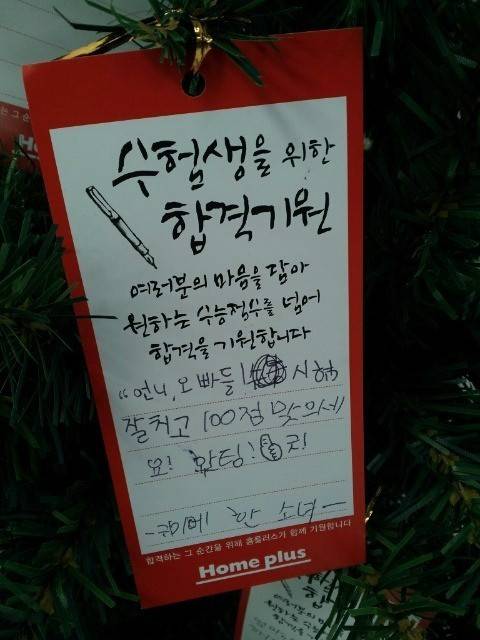 수험생을 위한
합격기원
여러분의 마음을 담아
원하는 수능점수를 넘어
합격을 기원합니다
"언니, 오빠들! 시험
잘 치고 100점 맞으세
요! 화팅! 굿!
한 소녀-
합격하는 그 순간을 위해 홈플러스가 함께 기원합니다
Home plus